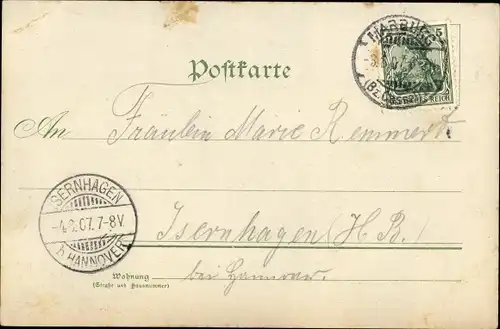 MARBURG
(BZ. CASSEL)
5
REICH
Postkarte
An Fräulein Marie Remmert
ISERNHAGEN
-4.9.07.7-8V.
b. HANNOVER
Isernhagen (H. B.)
bei Hannover.
Wohnung
(Straße und Hausnummer)